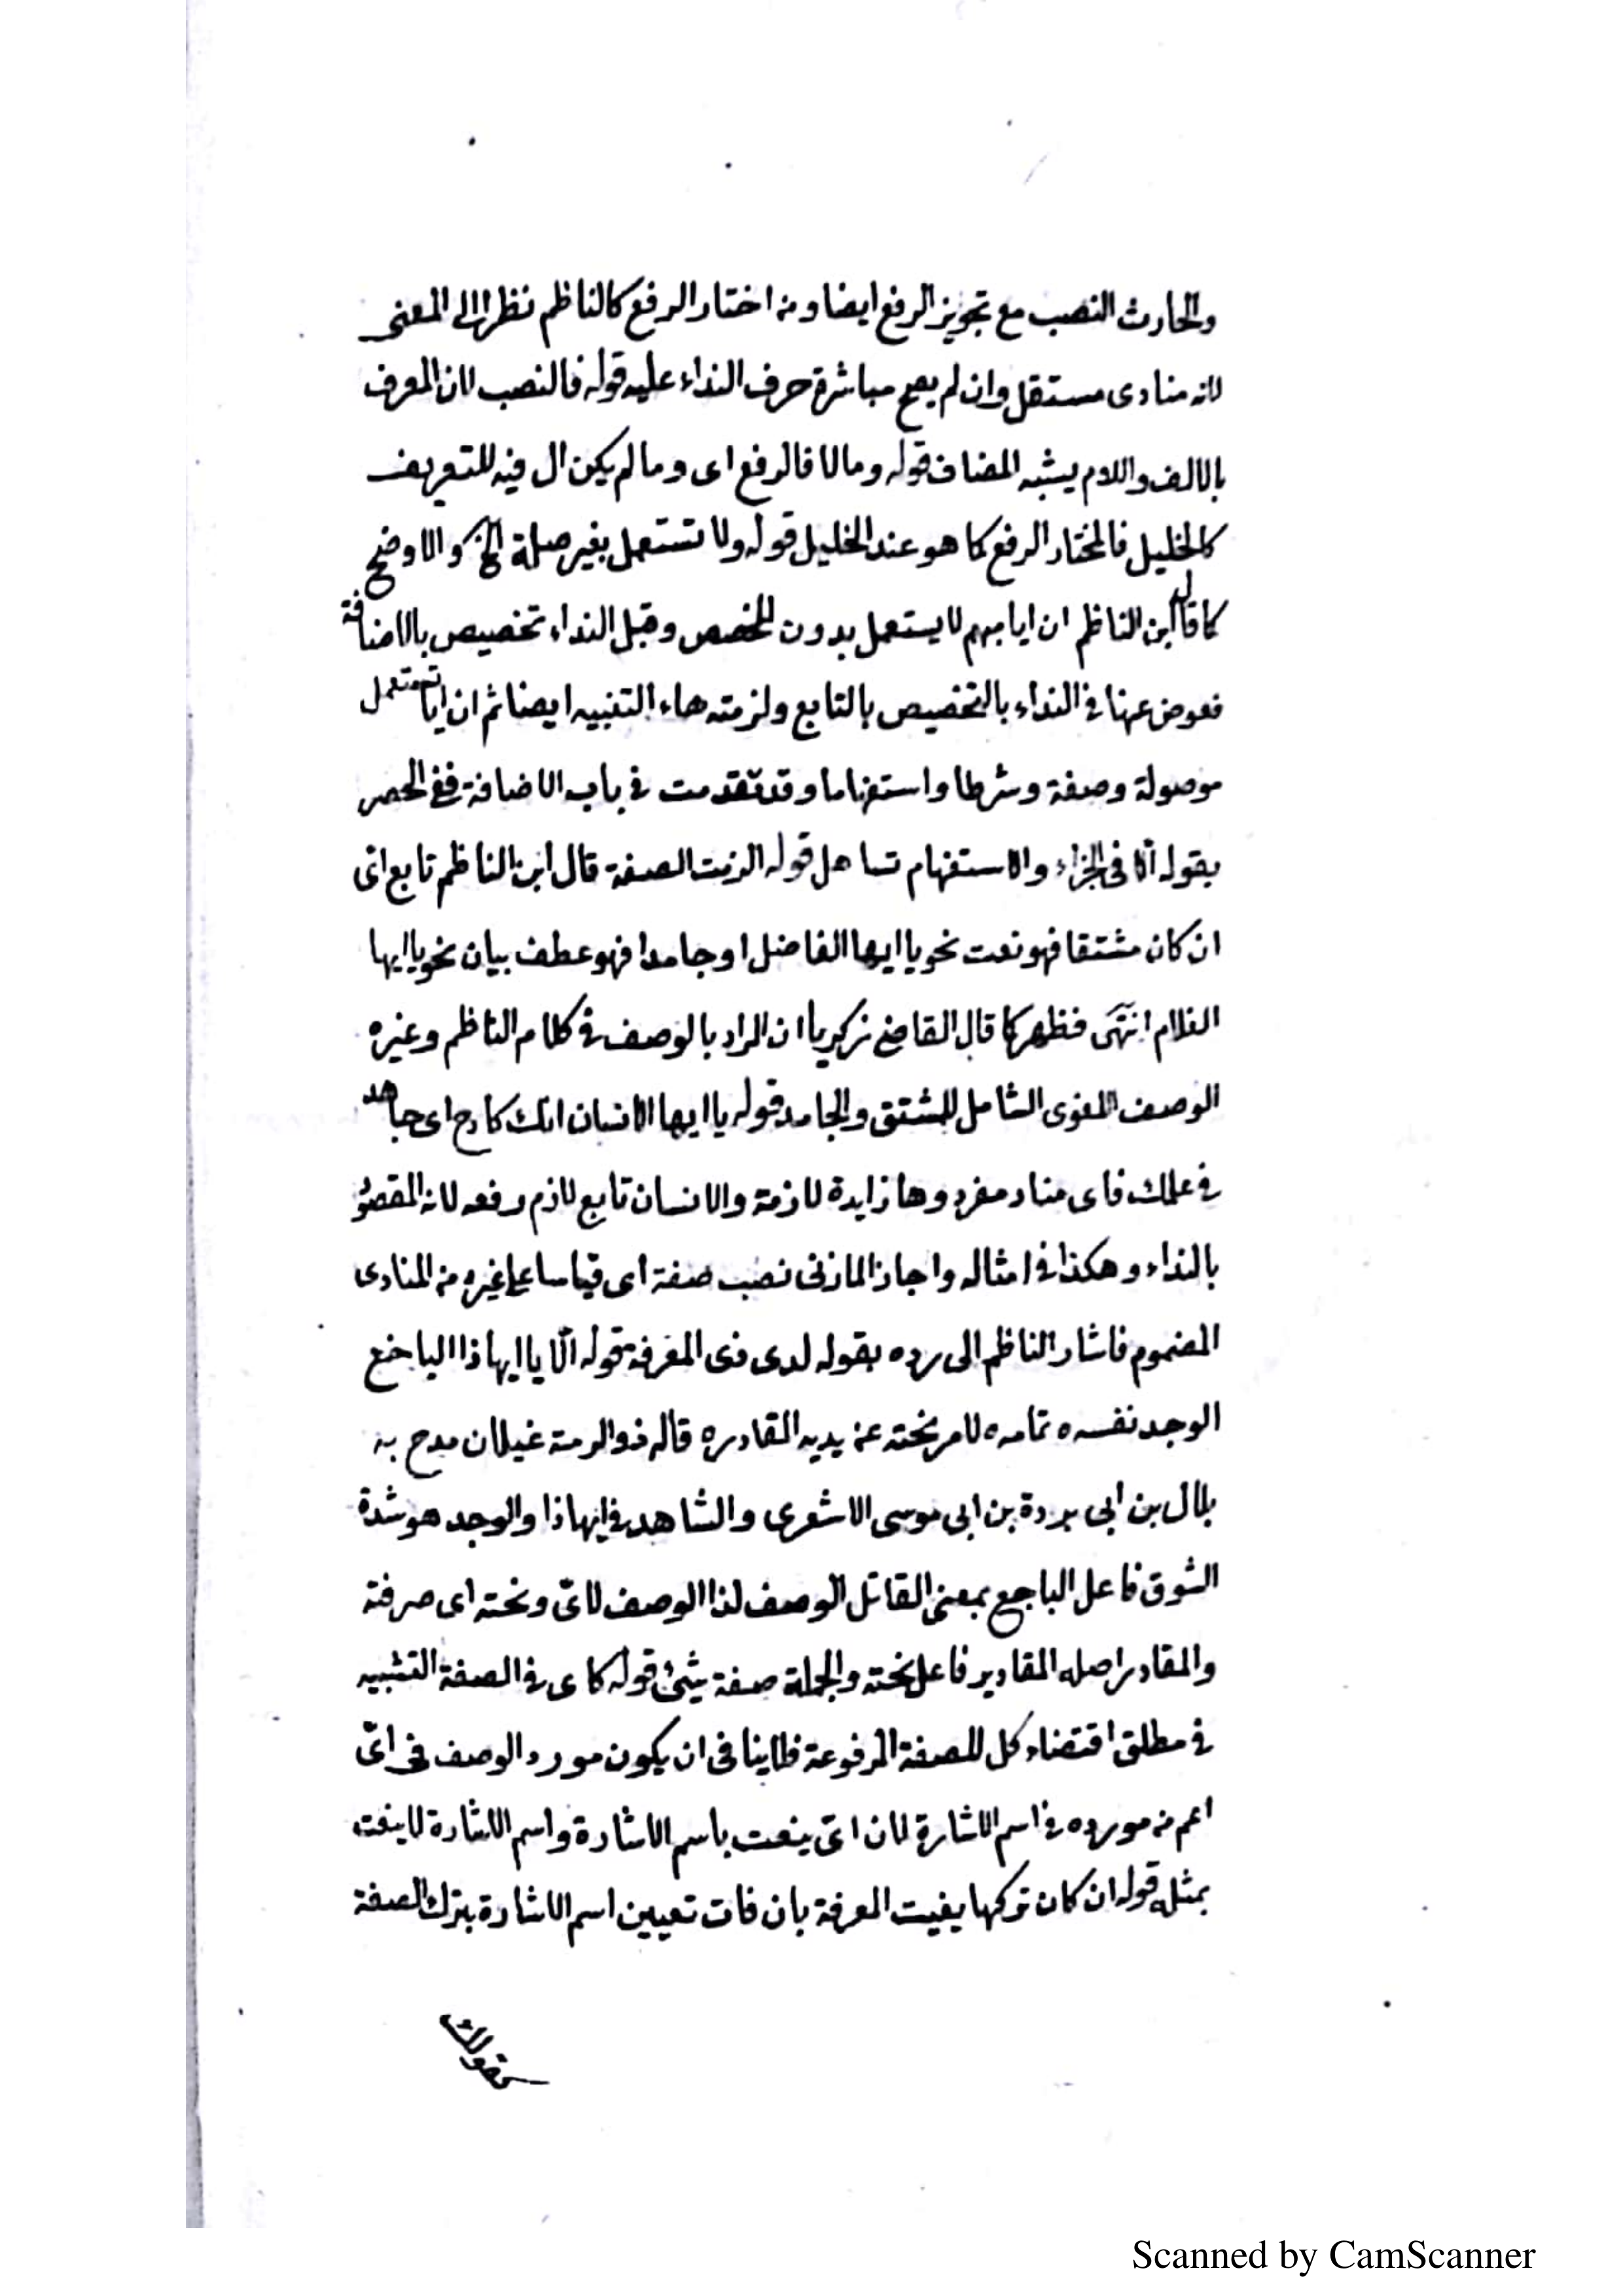 والحارث النصب مع تجويز الرفع ايضا ومن اختار الرفع كالناظم نظر الى المعنى
لانه منادى مستقل وان لم يصح مباشرة حرف النداء عليه قوله فالنصب لان المعرف
بالالف واللام يشبه المضاف قوله ومالا فالرفع اى وما لم يكن ال فيه للتعريف
كالخليل فالمختار الرفع كما هو عند الخليل قوله ولا تستعمل بغير صلة الخ والاوضح
كما قال ابن الناظم ان ايا مبهم لا يستعمل بدون المخصص وقبل النداء تخصيص بالاضافة
فعوض عنها فى النداء بالتخصيص بالتابع ولزمته هاء التنبيه ايضا ثم ان ايا تستعمل
موصولة وصفة وشرطا واستفهاما وقد تقدمت فى باب الاضافة ففى الحصر
بقوله الا فى الجزاء والاستفهام تساهل قوله الزمت الصفة قال ابن الناظم تابع اىّ
ان كان مشتقا فهو نعت نحو يا ايها الفاضل او جامدا فهو عطف بيان نحو يا ايها
الغلام انتهى فظهر كما قال القاضى زكريا ان المراد بالوصف فى كلام الناظم وغيره
الوصف اللغوى الشامل للمشتق والجامد قوله يا ايها الانسان انك كادح اى جاهد
فى عملك فاى مناد مفرد وها زايدة لازمة والانسان تابع لازم رفعه لانه المقصود
بالنداء وهكذا فى امثاله واجاز المازنى نصب صفة اى قياسا على غيره من المنادى
المضموم فاشار الناظم الى رده بقوله لدى ذى المعرفة قوله الا يا ايهاذا الباخع
الوجد نفسه تمامه لامر نحته عن يديه المقادره قاله ذو الرمة غيلان مدح به
بلال بن ابى بردة بن ابى موسى الاشعرى والشاهد فى ايهاذا والوجد هو شدة
الشوق فاعل الباجع بمعنى القاتل الوصف لذا الوصف لاىّ ونحته اى صرفته
والمقادر اصله المقادير فاعل نحته والجملة صفة شئ قوله كاى فى الصفة التشبيه
فى مطلق اقتضاء كل للصفة المرفوعة فلا ينافى ان يكون مورد الوصف فى اىّ
اعم من مورده فى اسم الاشارة لان اىّ ينعت باسم الاشارة واسم الاشارة لا ينعت
بمثله قوله ان كان تركها يفيت المعرفة بان فات تعيين اسم الاشارة بترك الصفة
Scanned by CamScanner